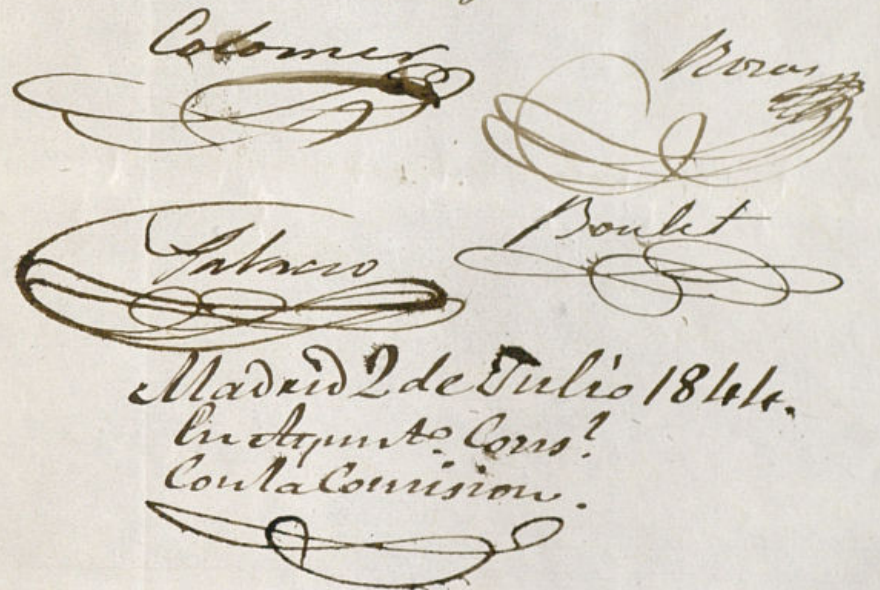 Colomer
Rozas
Palacio
Boulet
Madrid 2 de Julio 1844.
En Ayunt.º Cons.l
Con la Comision.